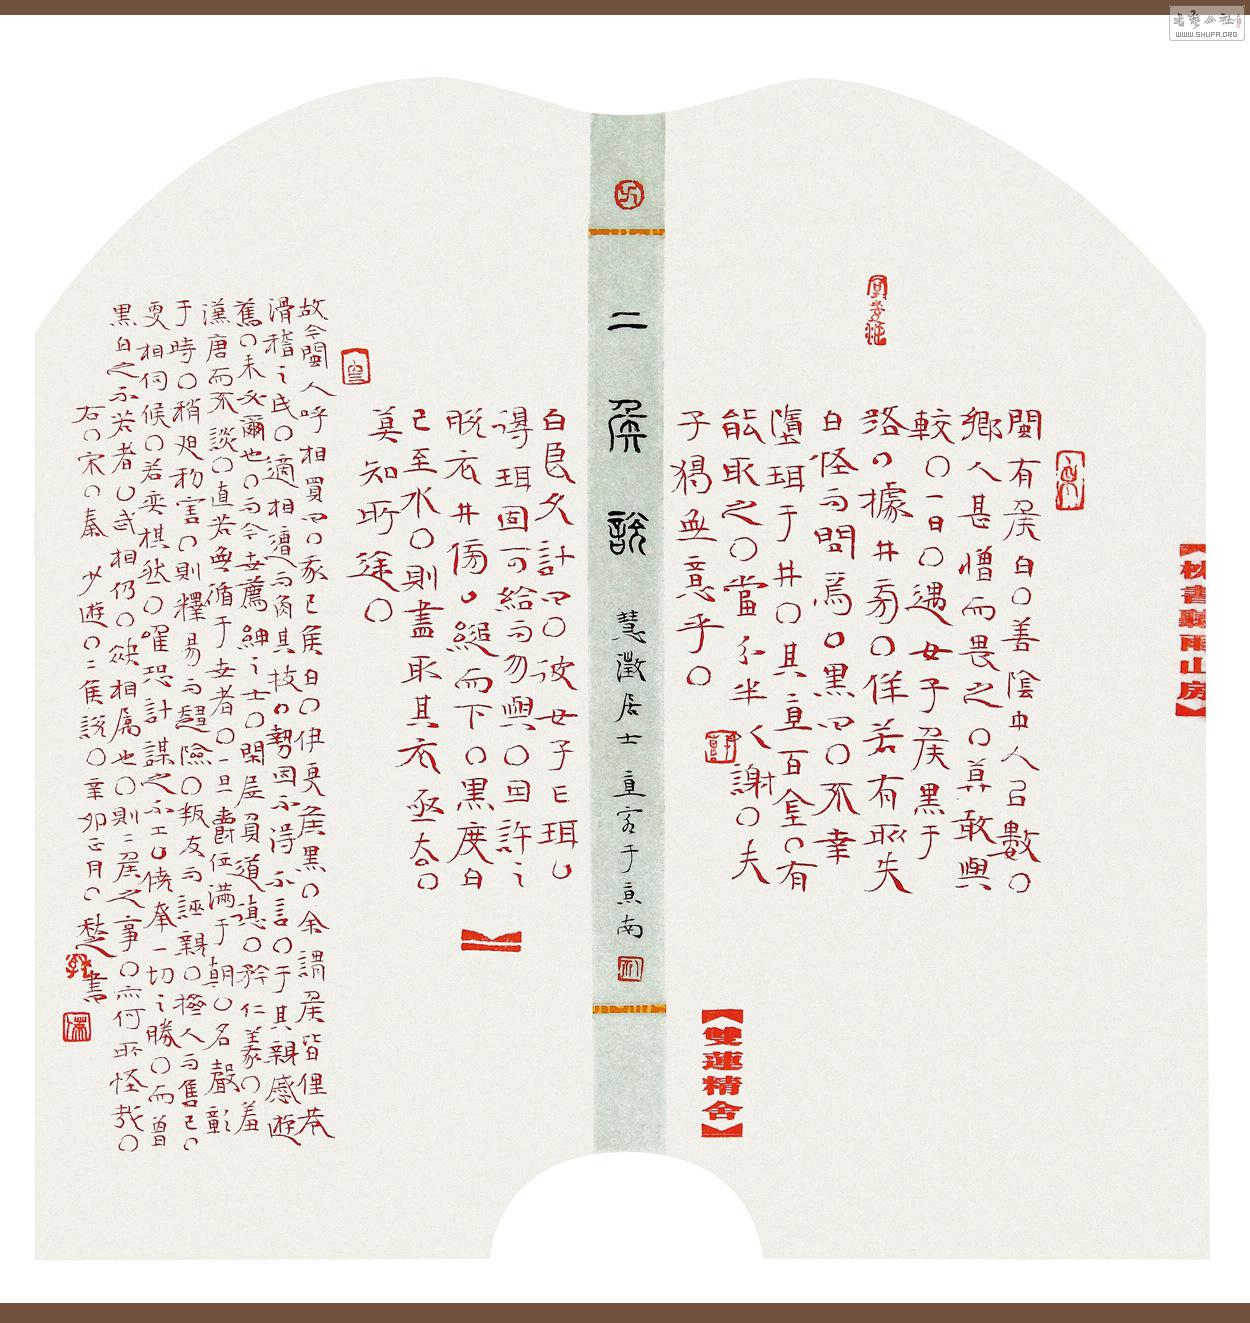 閩有矦白。善陰中人㠯數。
鄉人甚憎而畏之。莫敢與
較。一日。遇女子矦黑于
路。據井旁。佯若有所失
白怪而問焉。黑曰。不幸
墮珥于井。其直百金。有
能取之。當分半㠯謝。夫
子獨無意乎。
二矦說 慧澂居士 直客于京南
白良久計曰。彼女子亡珥。
得珥固可給而勿與。因許之
脫衣井傍。縋而下。黑度白
已至水。則盡取其衣亟去。
莫知所途。
故今閩人呼相買曰。我已矦白。伊更矦黑。余謂矦皆俚巷
滑稽之民。適相遭而角其技。勢固不得不言。于其親戚遊
舊。未必爾也。而今世薦紳之士。閑居負道德。矜仁義。羞
漢唐而不談。直若無循于世者。一旦爵位滿于朝。名聲彰
于時。稍迫利害。則釋易而趨險。叛友而誣親。擠人而售己。
更相伺候。若弈棋然。唯恐計謀之不工。僥幸一切之勝。而曾
黑白之不若者。或相仍。袂相属也。則二矦之事。亦何所怪哉。
右。宋。秦少遊。二矦說。辛卯正月。書
枕書聽雨山房
雙蓮精舍
書藝公社
WWW.SHUFA.ORG